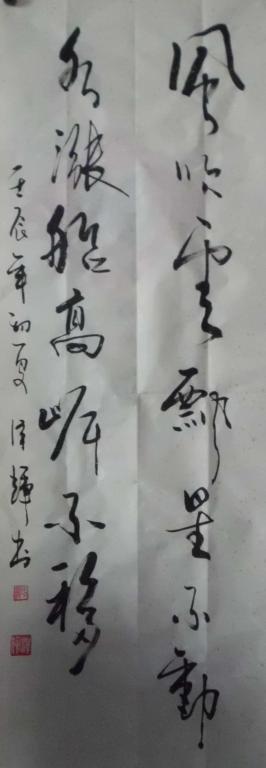 風吹雲飄星不動
水漲船高岸不移
壬辰年初夏 洋輝書